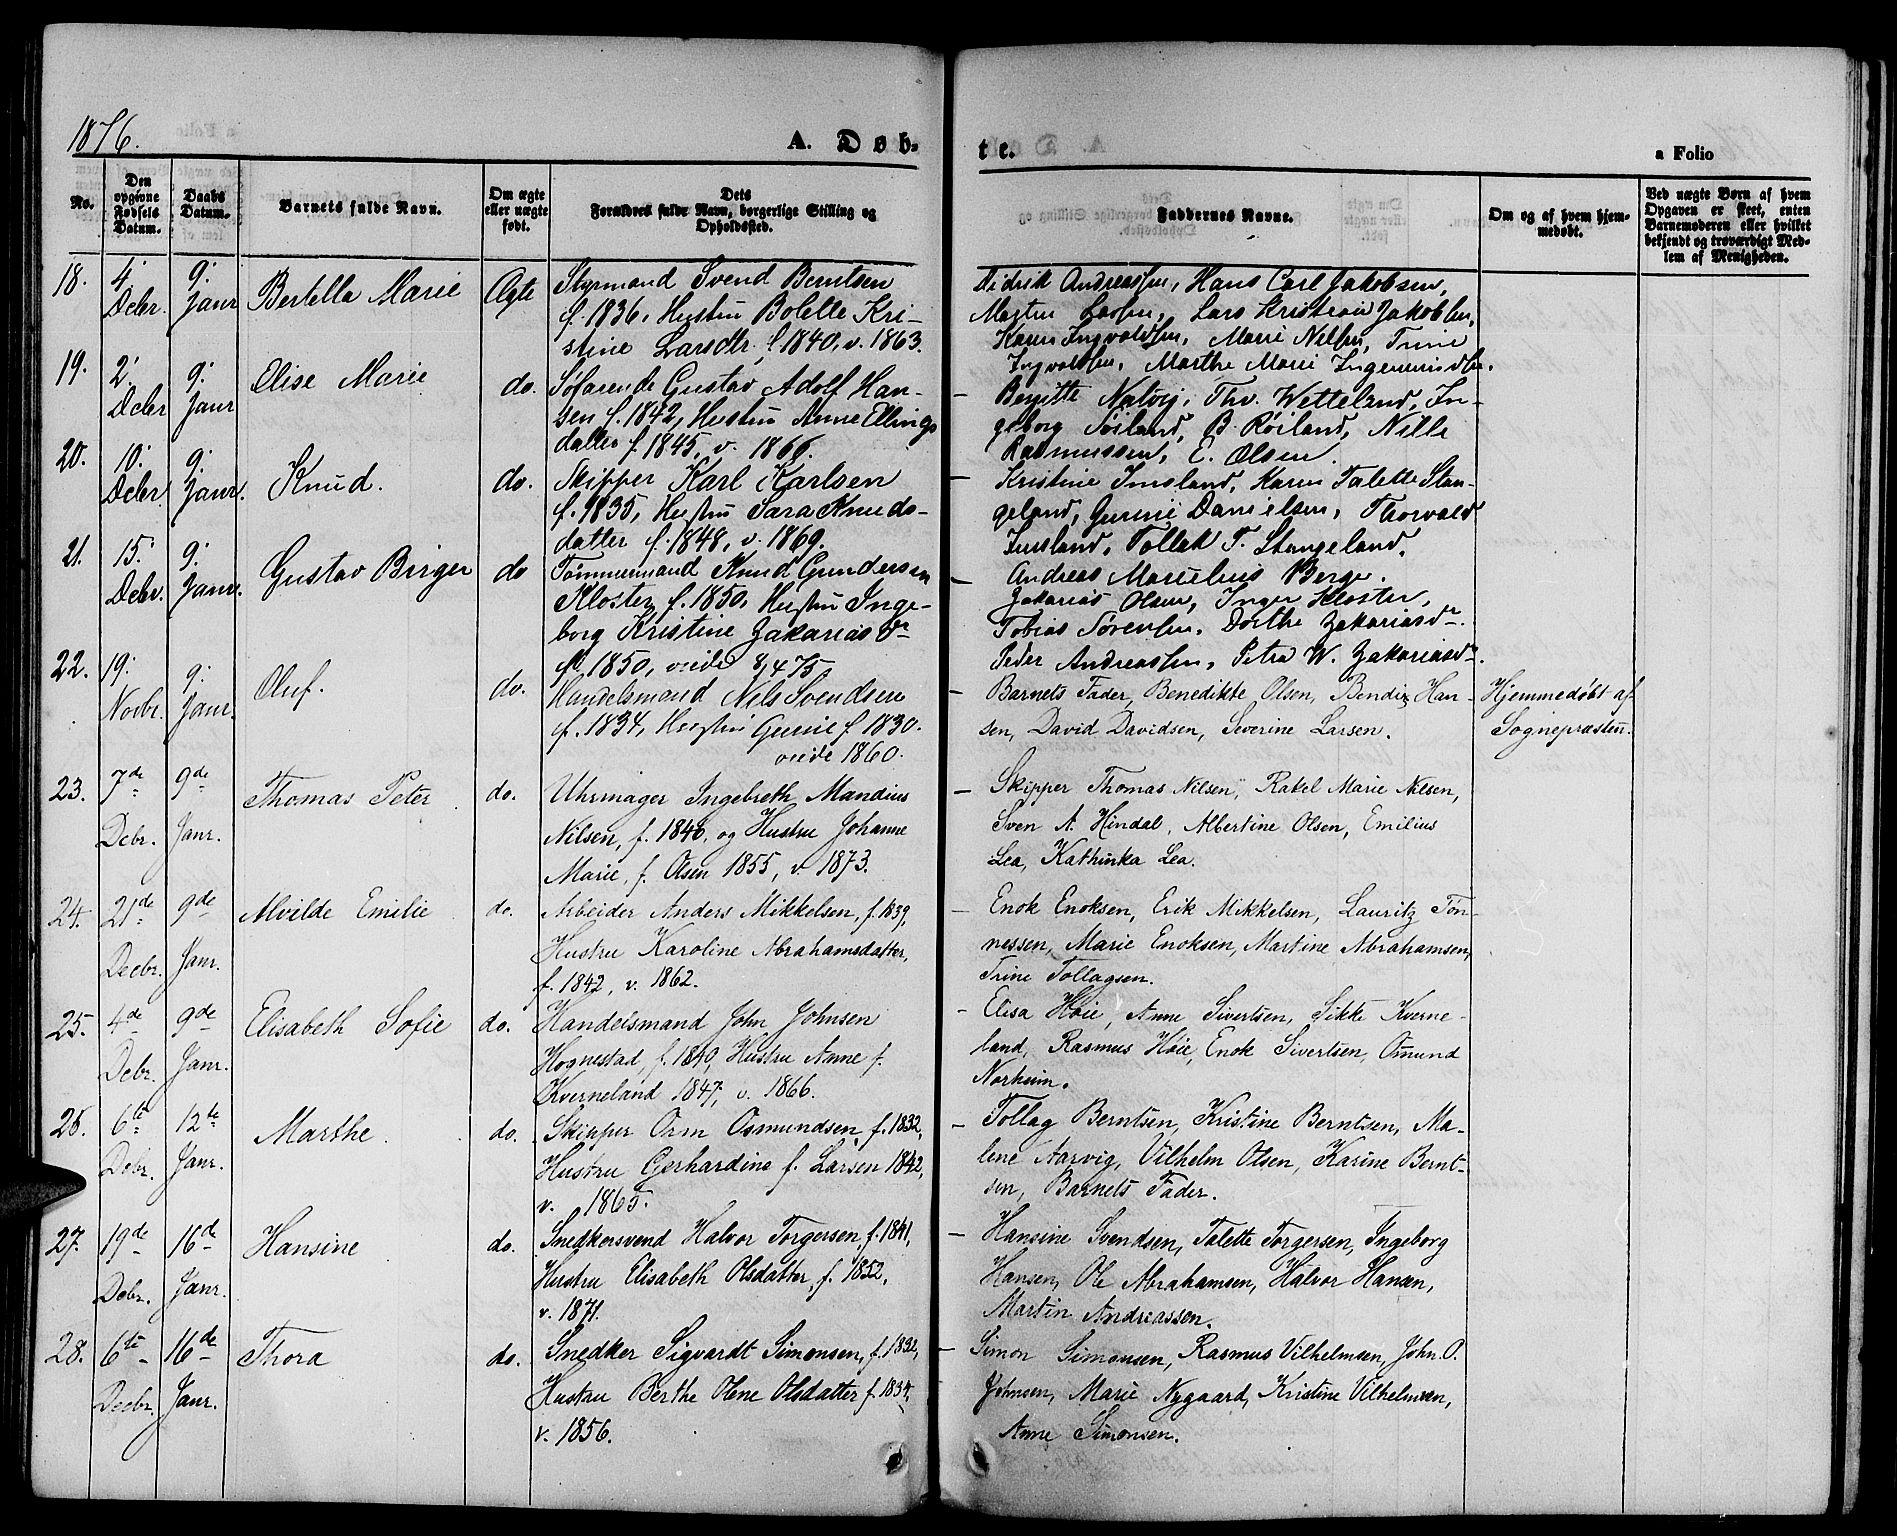 1876.
A. Døb-
te.
a Folio
No.
Den opgivne Fødsels Datum.
Daabs Datum.
Barnets fulde Navn.
Om ægte eller uægte født.
Dets Forældres fulde Navn, borgerlige Stilling og Opholdssted.
Faddernes Navne.
Om og af hvem hjemmedøbt.
Ved uægte Børn af hvem Opgaven er skeet, enten Barnemoderen eller hvilket bekjendt og troværdigt Medlem af Menigheden.
18. 4. Decbr. 9. Janr Bertella Marie Ægte
Styrmand Svend Berntsen
f. 1836, Hustru Bolette Kri-
stine Larsdtr. f. 1840, v. 1863.
Didrik Andreassen, Hans Carl Jakobsen,
Larsen, Lars Kristian Jakobsen,
Karen Ingvaldsen, Marie Nilsen, Trine
Ingvaldsen, Marthe Marie
19. 2. Decbr 9. Janr Elise Marie do.
Søfarende Gustav Adolf Han-
sen f. 1842, Hustru Anne Ellings
datter f. 1845, v. 1866.
– Berjitte Natvig, Thv. Wetteland, In-
geborg Soiland, B. Røiland, Nille
Rasmussen, E. Olsen.
20. 10. Decbr. 9. Janr. Knud. do.
Skipper Karl Karlsen
f. 1835, Hustru Sara Knuds-
datter f. 1848, v. 1869.
– Kristine Imsland, Karen Talette Stan-
geland, Gurine Danielsen, Thorvald
Imsland, Tollak T. Stangeland.
21. 15. Decbr. 9. Janr. Gustav Birger do
Tømmermand Knud Gundersen
Kloster f. 1850, Hustru Inge-
borg Kristine Zakariasdr
f. 1850, viede 8/4 75
– Andreas Marselius Berge,
Zakarias Olsen, Inger Kloster,
Tobias Sørensen, Dorthe Zakariasdr.
Peder Andreassen, Petra W. Zakariasdr.
22. 19. Novbr. 9. Janr. Oluf. do.
Handelsmand Nils Svendsen
f. 1834, Hustru Gurine f. 1830.
viede 1860.
– Barnets Fader, Benedikte Olsen, Bendix Han-
sen, David Davidsen, Severine Larsen.
Hjemmedøbt af
Sognepræsten.
23. 7de Decbr. 9de Janr. Thomas Peter do.
Uhrmager Ingebreth Mandius
Nilsen, f. 1846, og Hustru Johanne
Marie, f. Olsen 1855, v. 1873.
– Skipper Thomas Nilsen, Rakel Marie Nilsen,
Sven A. Hindal, Albertine Olsen, Emilius
Lea, Kathinka Lea.
24. 21de Decbr. 9de Janr. Alvilde Emilie do.
Arbeider Anders Mikkelsen, f. 1839,
Hustru Karoline Abrahamsdatter,
f. 1842, v. 1862.
– Enok Enoksen, Erik Mikkelsen, Lauritz Tøn-
nessen, Marie Enoksen, Martine Abrahamsen,
Trine Tollagsen.
25. 4de Decbr. 9de Janr. Elisabeth Sofie do.
Handelsmand John Johnsen
Hognestad, f. 1840, Hustru Anne f.
Kverneland 1847, v. 1866.
– Elisa Høie, Anne Sivertsen, Sikke Kverne-
land, Rasmus Høie, Enok Sivertsen, Omund
Norheim.
26. 6te Decbr. 12te Janr. Marthe. do.
Skipper Orm Osmundsen, f. 1832,
Hustru Gerhardine f. Larsen 1842,
v. 1865.
– Tollag Berntsen, Kristine Berntsen, Ma-
lene Aarvig, Vilhelm Olsen, Karine Bernt-
sen, Barnets Fader.
27. 19de Decbr. 16de Janr. Hansine do.
Snedkersvend Halvor Torgersen, f. 1841,
Hustru Elisabeth Olsdatter, f. 1852,
v. 1871.
– Hansine Svendsen, Talette Torgersen, Ingeborg
Hansen, Ole Abrahamsen, Halvor Hansen,
Martin Andreassen.
28. 6te Decbr. 16de Janr. Thora do.
Snedker Sigvardt Simonsen, f. 1832,
Hustru Berthe Olene Olsdatter f. 1834,
v. 1856.
– Simon Simonsen, Rasmus Vilhelmsen, John O.
Johnsen, Marie Nygaard, Kristine Vilhelmsen,
Anne Simonsen.